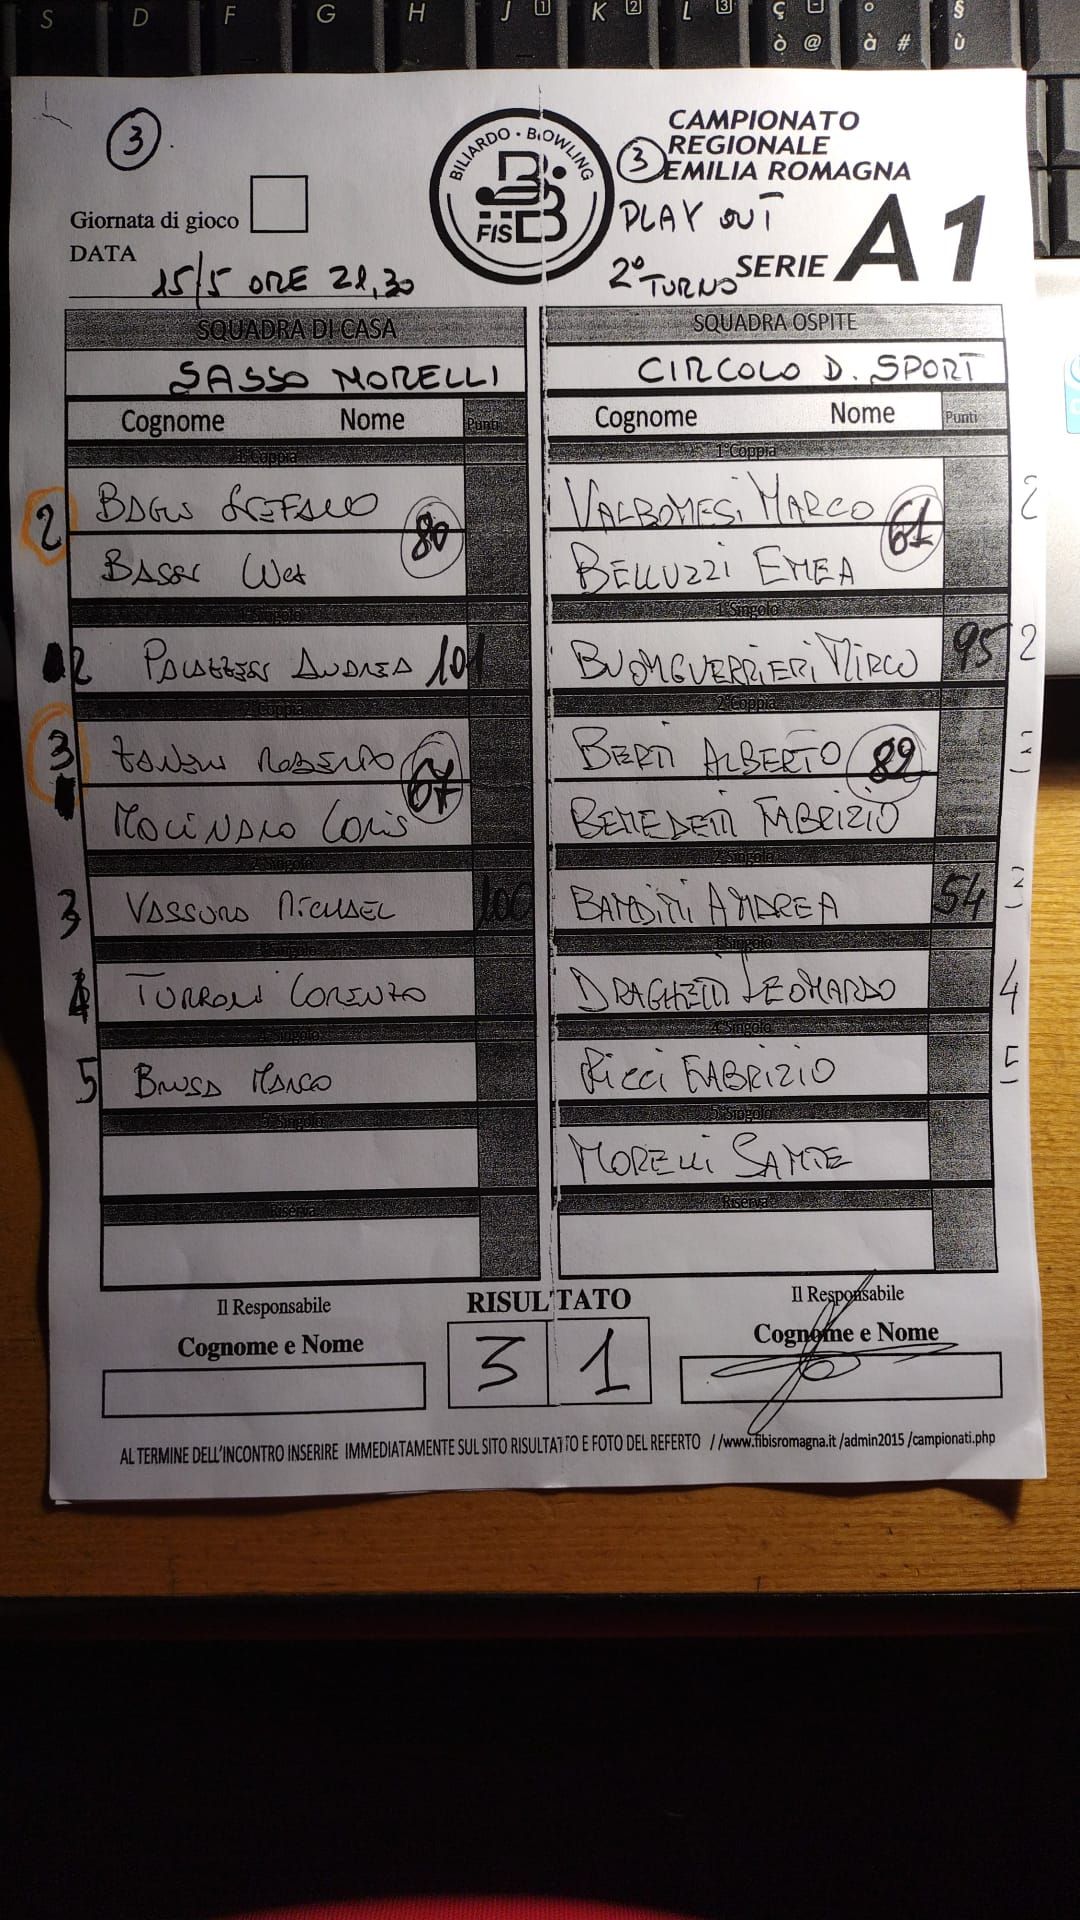 S D F G H J 1 K 2 L 3 ç ò @ ° à # § ù
3
BILIARDO • BOWLING
FISBB
CAMPIONATO
REGIONALE
3 EMILIA ROMAGNA
PLAY OUT
Giornata di gioco
DATA
15/5 ORE 21,30
2° TURNO SERIE A1
SQUADRA DI CASA SQUADRA OSPITE
SASSO MORELLI CIRCOLO D. SPORT
Cognome Nome Punti Cognome Nome Punti
1°Coppia 1°Coppia
2 STEFANO 80 VALBONESI MARCO 61 2
BELLUZZI ENEA
1°Singolo 1°Singolo
2 ANDREA 101 BUONGUERRIERI MIRCO 95 2
2°Coppia 2°Coppia
3 ROBERTO 67 BERTI ALBERTO 89 3
MOLINARO LORIS BENEDETTI FABRIZIO
2°Singolo 2°Singolo
3 VASSURA MICHAEL 100 BANDINI ANDREA 54 3
3°Singolo 3°Singolo
4 TURRONI LORENZO DRAGHETTI LEONARDO 4
4°Singolo 4°Singolo
5 BRUSA MARCO RICCI FABRIZIO 5
5°Singolo 5°Singolo
MORELLI SANTE
Riserva Riserva
Il Responsabile RISULTATO Il Responsabile
Cognome e Nome 3 1 Cognome e Nome
AL TERMINE DELL'INCONTRO INSERIRE IMMEDIATAMENTE SUL SITO RISULTATO E FOTO DEL REFERTO //www.fibisromagna.it /admin2015 /campionati.php